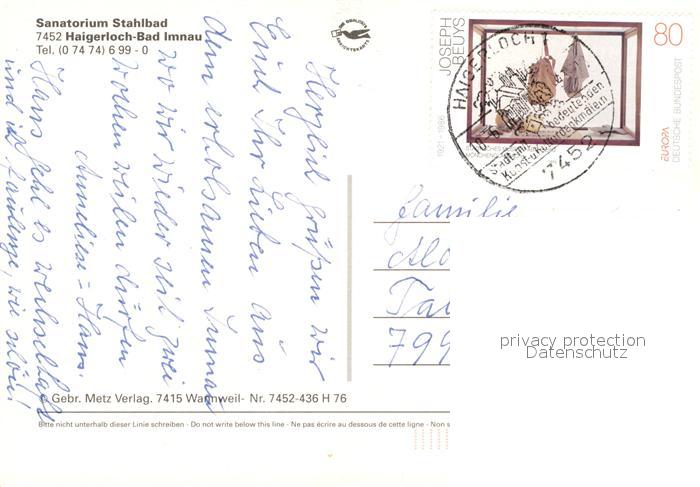 Sanatorium Stahlbad
7452 Haigerloch-Bad Imnau
Tel. (0 74 74) 6 99 - 0
Herzlich grüßen wir
Euch Ihr Lieben aus
dem erholsamen Imnau
wo wir wieder seit zwei
Wochen weilen dürfen
Anneliese = Hans.
Hans geht es wechselhaft
und ich faulenze, wie schön!
JOSEPH BEUYS
1921 - 1986
80
EUROPA
DEUTSCHE BUNDESPOST
HAIGERLOCH 1
Stadt mit bedeutenden
Kunst- u. Kulturdenkmälern
7452
Familie
Tai
799
privacy protection
Datenschutz
Gebr. Metz Verlag. 7415 Wannweil- Nr. 7452-436 H 76
Bitte nicht unterhalb dieser Linie schreiben - Do not write below this line - Ne pas écrire au dessous de cette ligne - Non s